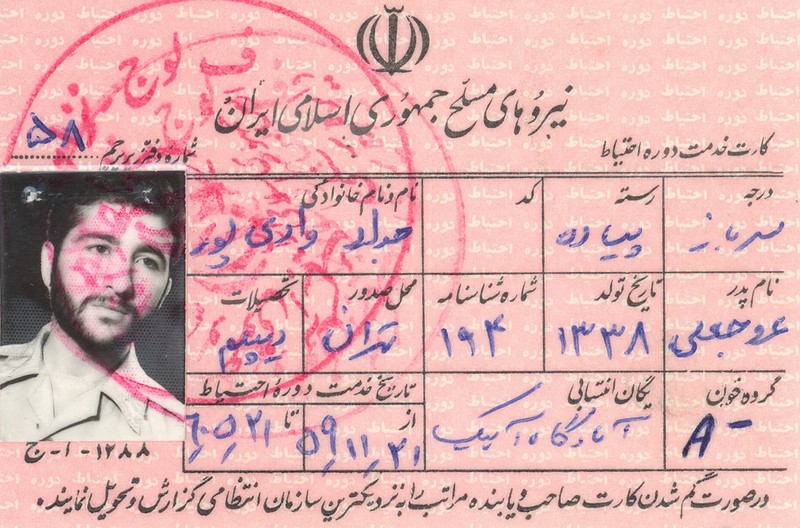 نیروهای مسلح جمهوری اسلامی ایران
کارت خدمت دوره احتیاط
شماره دفتر پرچم ۵۸
درجه رسته کد نام و نام خانوادگی
سرباز پیاده
نام پدر تاریخ تولد شماره شناسنامه محل صدور تحصیلات
۱۳۳۸ ۱۹۴ تهران دیپلم
گروه خون یگان انتسابی تاریخ خدمت دوره احتیاط
A- آمادگاه آبیک از ۵۹٫۱۱٫۲۱ تا ۶۰٫۵٫۲۱
۱۲۸۸-ا-ج
در صورت گم شدن کارت صاحب و یابنده مراتب را به نزدیکترین سازمان انتظامی گزارش و تحویل نمایند.